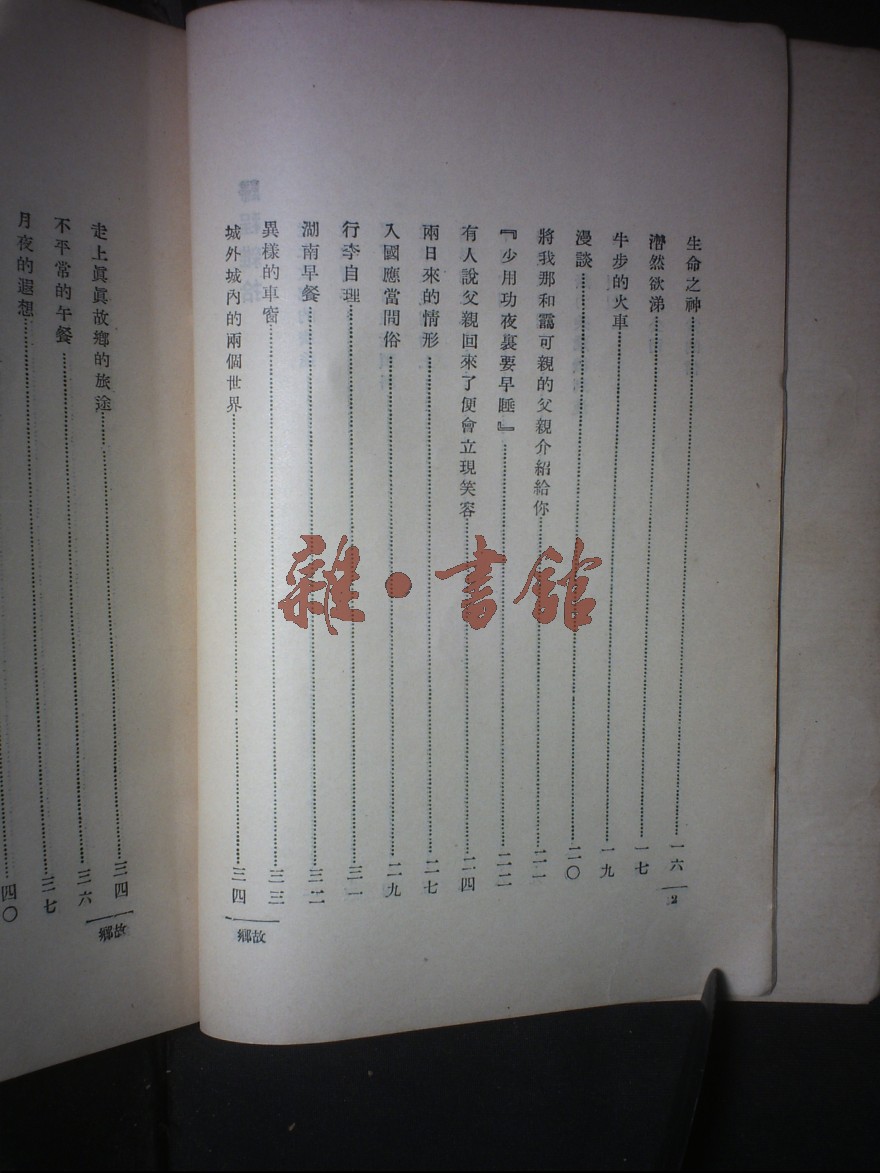 生命之神……一六
潸然欲涕……一七
牛步的火車……一九
漫談……二〇
將我那和靄可親的父親介紹給你……二一
『少用功夜裏要早睡』……二二
有人說父親回來了便會立現笑容……二四
兩日來的情形……二七
入國應當問俗……二九
行李自理……三一
湖南早餐……三二
異樣的車窗……三三
城外城內的兩個世界……三四
2
鄉故
走上眞眞故鄉的旅途……三四
不平常的午餐……三六
月夜的遐想……三七
四〇
鄉故
雜·書館